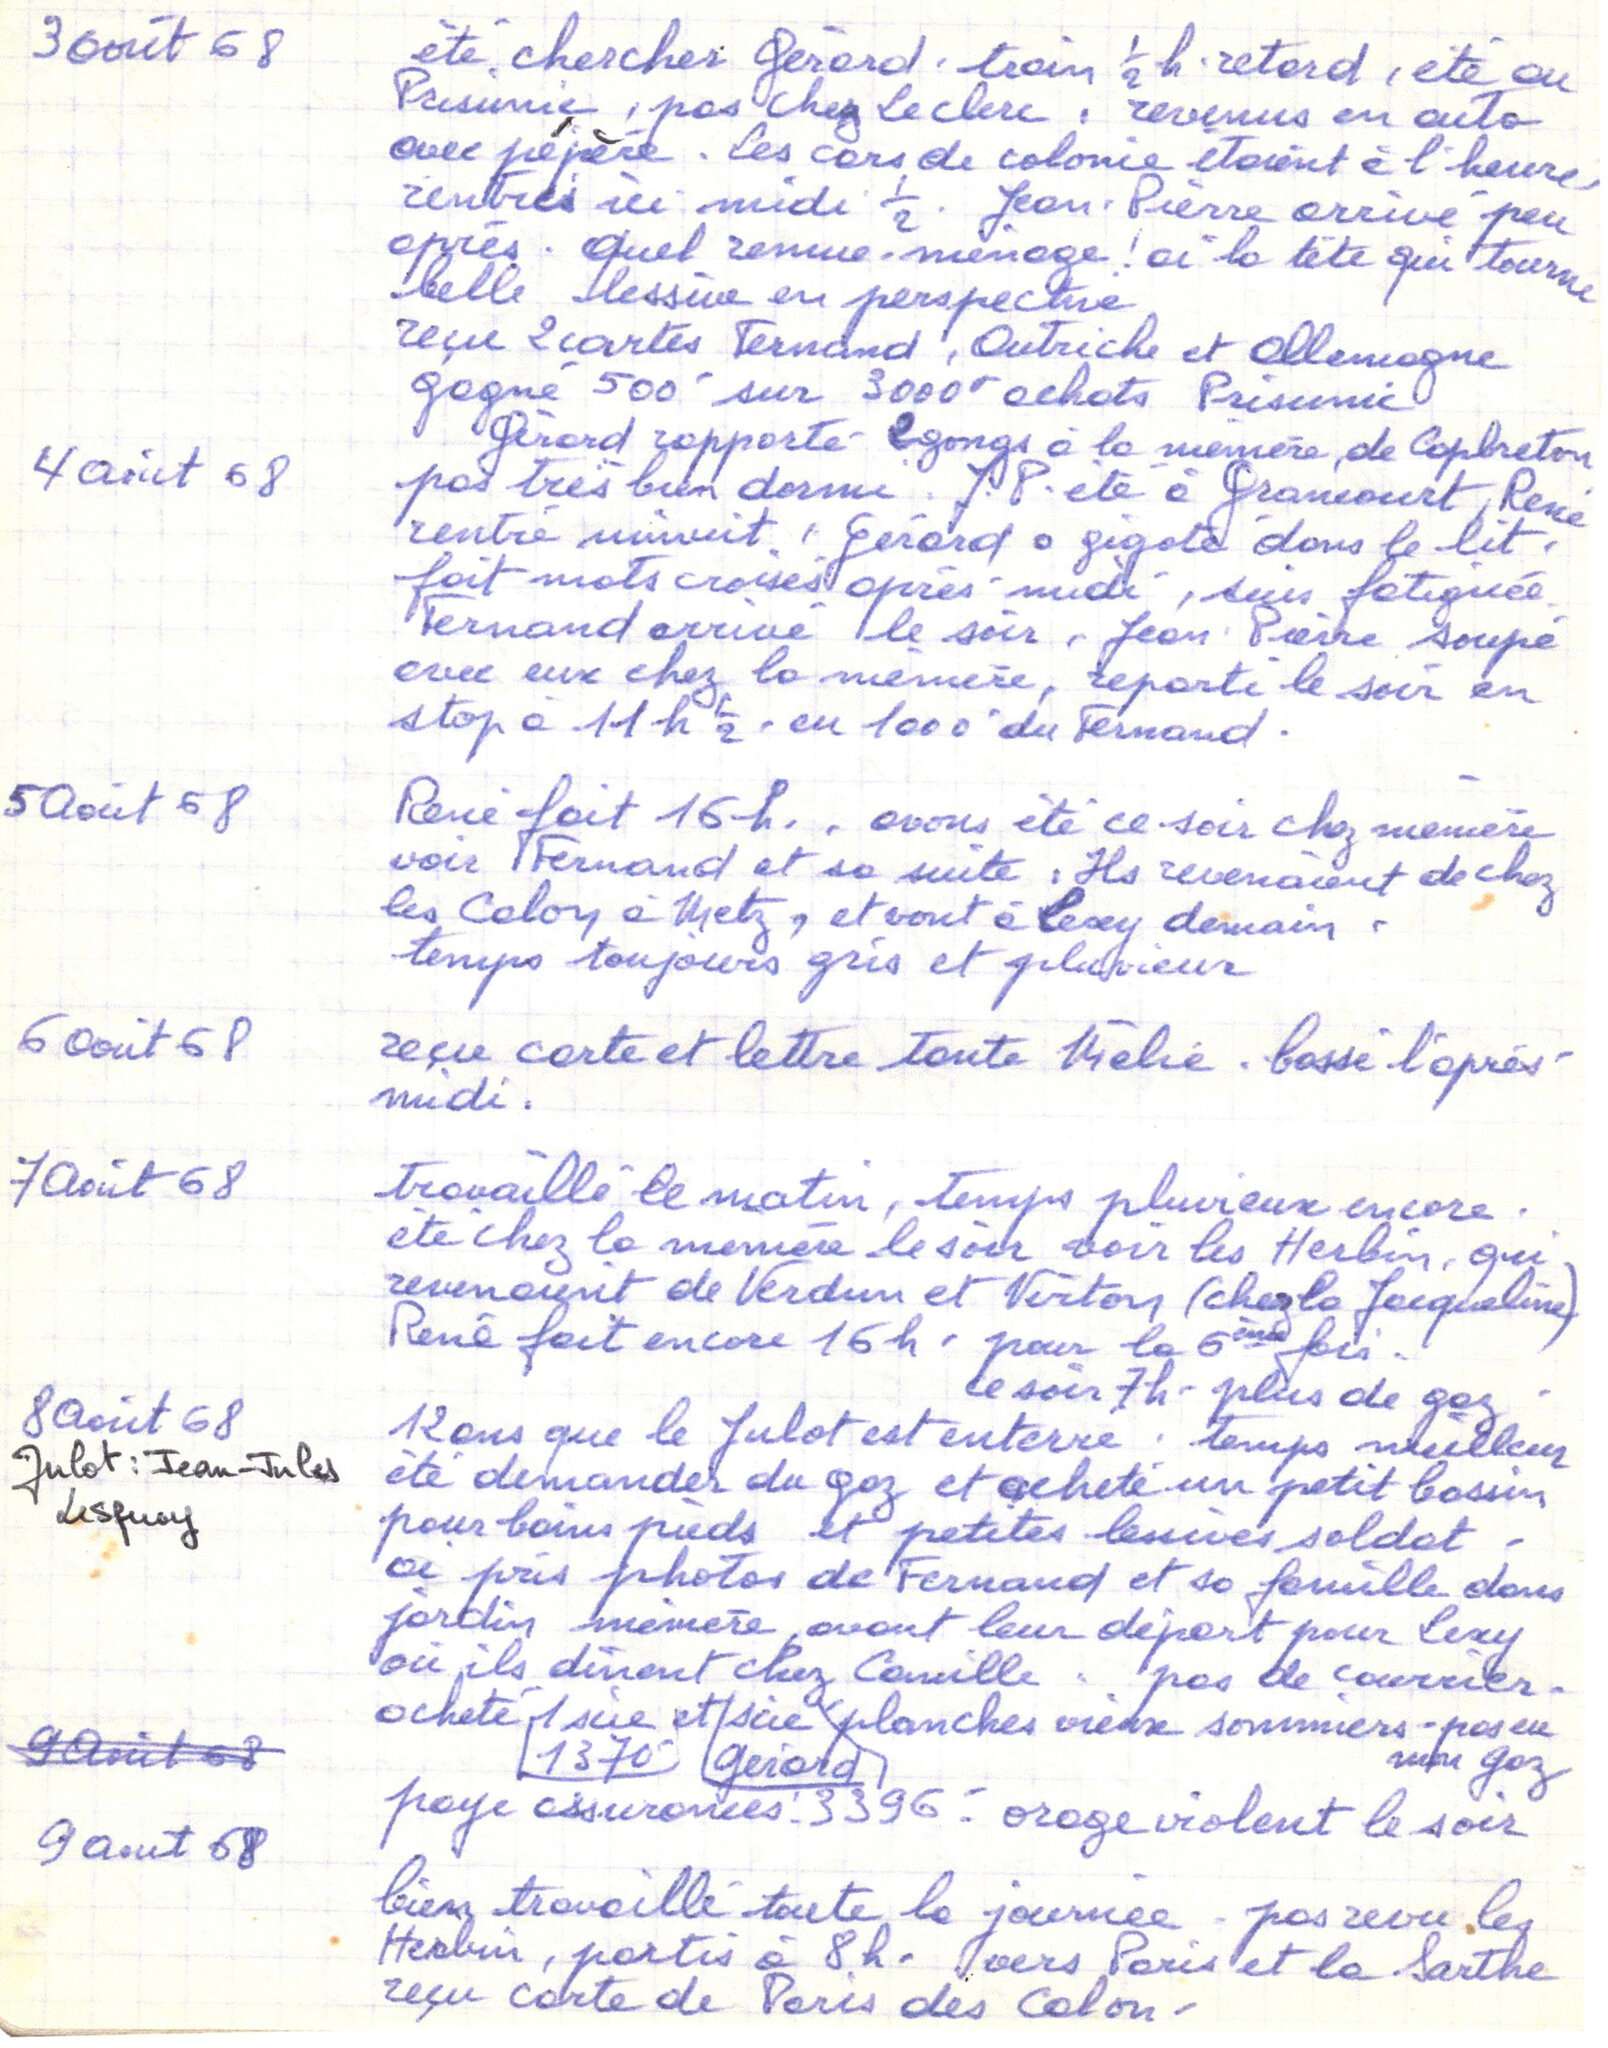 3 août 68 été chercher Gérard. train ½ h. retard, été au
Prisunic, pas chez Leclerc. revenus en auto
avec pépère. Les cars de colonie étaient à l'heure,
rentrés ici midi ½. Jean-Pierre arrivé peu
après. Quel remue-ménage! ai la tête qui tourne
belle lessive en perspective
reçu 2 cartes Fernand, Autriche et Allemagne
gagné 500 sur 3000 achats Prisunic
Gérard rapporté 2 gongs à la mémère, de Capbreton
4 août 68 pas très bien dormi. J.P. été à Grancourt, René
rentré minuit, Gérard a gigoté dans le lit.
fait mots croisés après-midi, suis fatiguée.
Fernand arrivé le soir. Jean-Pierre soupé
avec eux chez la mémère, reparti le soir en
stop à 11 h ½. eu 1000 du Fernand.
5 Août 68 René fait 16 h.. avons été ce soir chez mémère
voir Fernand et sa suite. Ils revenaient de chez
les Colon à Metz, et vont à Lexy demain.
temps toujours gris et pluvieux
6 août 68 reçu carte et lettre tante Mélie. bossé l'après-
midi.
7 Août 68 travaillé le matin, temps pluvieux encore.
été chez la mémère le soir voir les Herbin, qui
revenaient de Verdun et Virton (chez la Jacqueline)
René fait encore 16 h. pour la 6ème fois.
ce soir 7h. plus de gaz.
8 Août 68 12 ans que le Julot est enterré. temps meilleur
Julot: Jean-Jules
Lesquoy
été demander du gaz et acheté un petit bassin
pour bains pieds et petites lessives soldat.
ai pris photos de Fernand et sa famille dans
jardin mémère, avant leur départ pour Lexy
où ils dînent chez Camille. pas de courrier.
acheté 1 scie et scié planches vieux sommiers - pas eu
9 Août 68 1370 Gérard mon gaz
payé assurances: 3396 - orage violent le soir
9 aout 68
bien travaillé toute la journée. pas revu les
Herbin, partis à 8 h. vers Paris et la Sarthe
reçu carte de Paris des Colon.